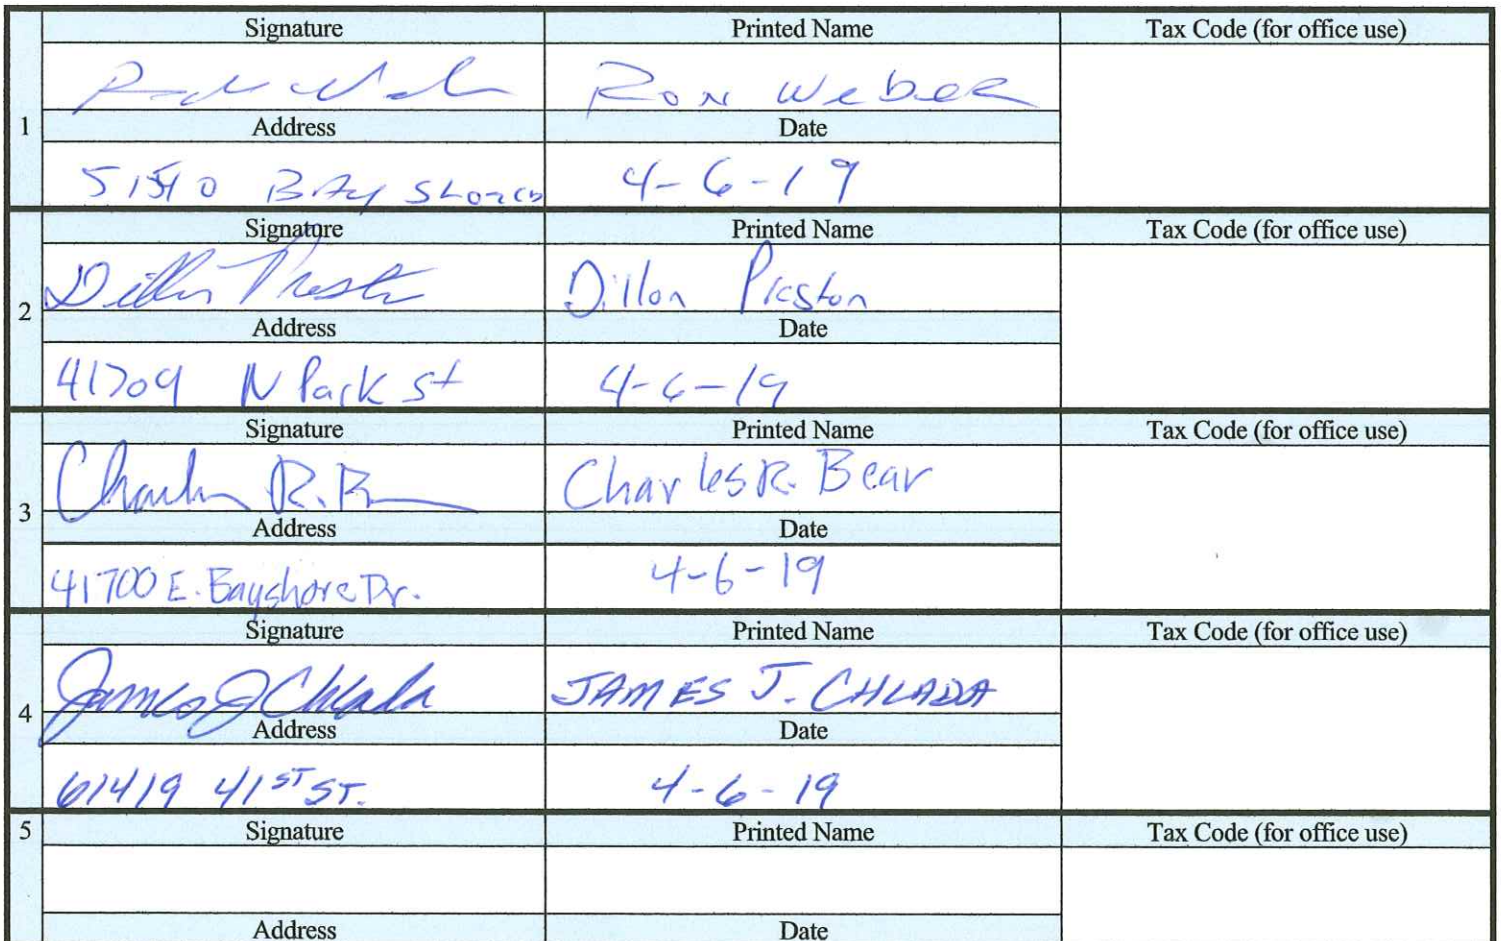 Signature Printed Name Tax Code (for office use)
Ron Weber
1 Address Date
Bay Shores 4-6-19
Signature Printed Name Tax Code (for office use)
Dillon Preston Dillon Preston
2 Address Date
41709 N Park St 4-6-19
Signature Printed Name Tax Code (for office use)
Charles R. B Charles R. Bear
3 Address Date
41700 E. Bayshore Dr. 4-6-19
Signature Printed Name Tax Code (for office use)
James J Chlada JAMES J. CHLADA
4 Address Date
61419 41ST ST. 4-6-19
5 Signature Printed Name Tax Code (for office use)
Address Date